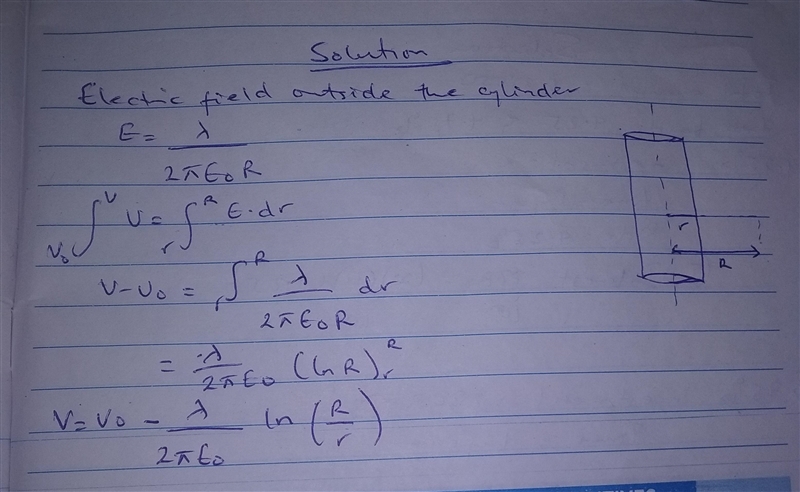 Solution
Electric field outside the cylinder
E = λ / 2πε₀R
∫_{V₀}^{V} V = ∫_{r}^{R} E·dr
V-V₀ = ∫_{r}^{R} λ / 2πε₀R dr
= -λ / 2πε₀ (ln R)_{r}^{R}
V = V₀ - λ / 2πε₀ ln (R/r)
r
R